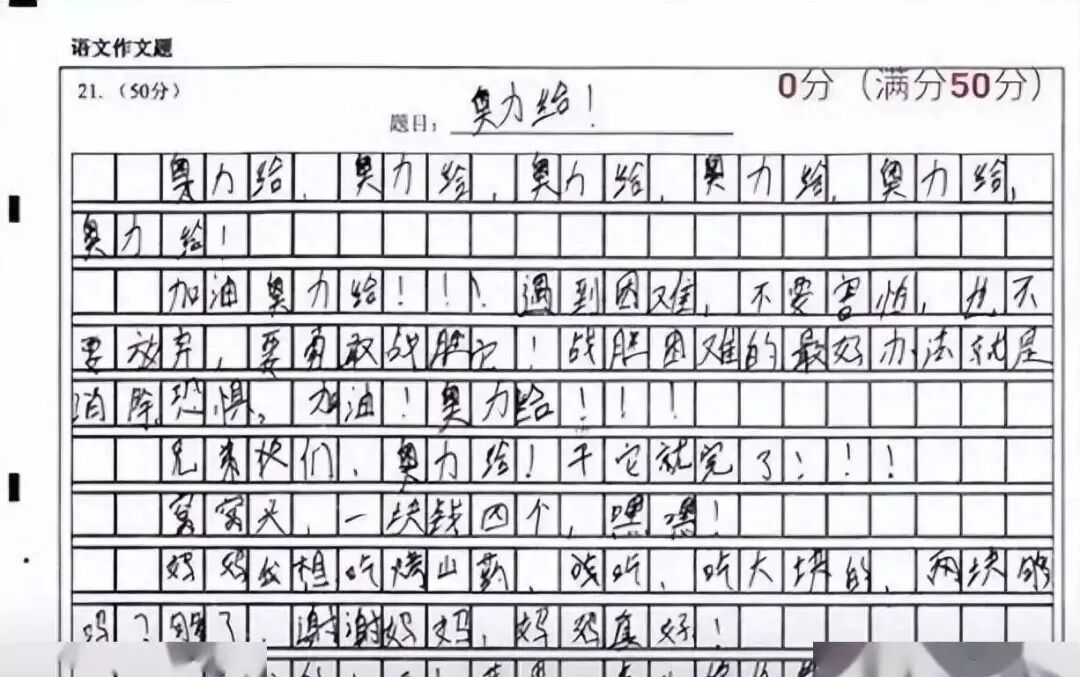 语文作文题
21.（50分）
0分（满分50分）
题目：奥力给！
奥力给，奥力给，奥力给，奥力给，奥力给，
奥力给！
加油奥力给！！！遇到困难，不要害怕，也不
要放弃，要勇敢战胜它！战胜困难的最好办法就是
消除恐惧。加油！奥力给！！！
兄弟们，奥力给！干它就完了！！！
窝窝头，一块钱四个，嘿嘿！
妈妈我想吃烤山药，吃，吃大块的，两块够
吗？够了，谢谢妈妈，妈妈真好！